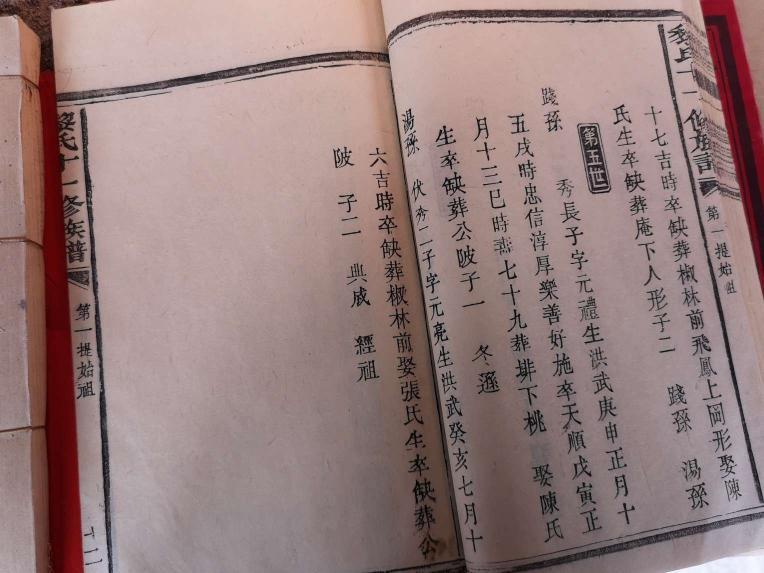 黎氏十一修族譜
第一提始祖
十七吉時卒缺葬椒林前飛鳳上岡形娶陳
氏生卒缺葬庵下人形子二 踐孫 湯孫
第五世
踐孫 秀長子字元禮生洪武庚申正月十
五戌時忠信淳厚樂善好施卒天順戊寅正
月十三巳時壽七十九葬排下桃 娶陳氏
生卒缺葬公陂子一 冬遜
湯孫 伏秀二子字元亮生洪武癸亥七月十
六吉時卒缺葬椒林前娶張氏生卒缺葬公
陂子二 典成 經祖
黎氏十一修族譜
第一提始祖